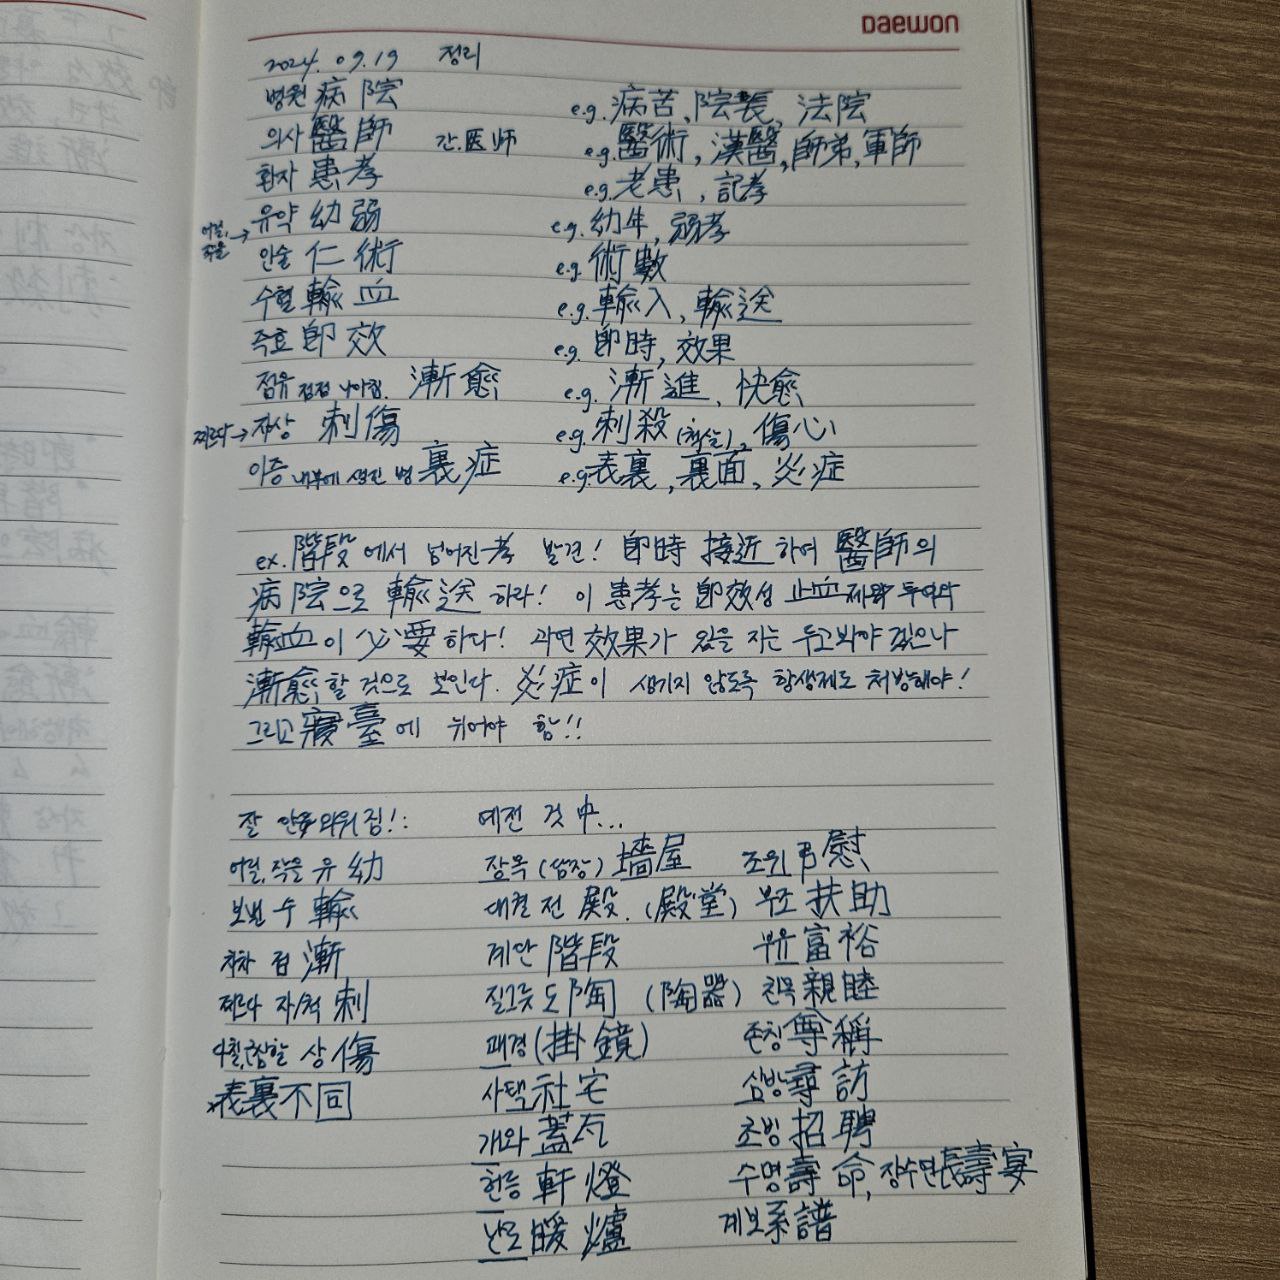 DAEWON
2024. 09.19 정리
병원 病院 e.g. 病苦, 院長, 法院
의사 醫師 간.医师 e.g. 醫術, 漢醫, 師弟, 軍師
환자 患者 e.g. 老患, 記者
어릴, 작을 → 유약 幼弱 e.g. 幼年, 弱者
인술 仁術 e.g. 術數
수혈 輸血 e.g. 輸入, 輸送
즉효 卽效 e.g. 卽時, 效果
점유 점점 나아짐. 漸愈 e.g. 漸進, 快愈
찌르다 → 자상 刺傷 e.g. 刺殺 (척살), 傷心
이증 내부에 생긴 병 裏症 e.g. 表裏, 裏面, 炎症
ex. 階段에서 넘어진 者 발견! 卽時 接近하여 醫師의
病院으로 輸送하라! 이 患者는 卽效성 止血제와 투여와
輸血이 必要하다! 과연 效果가 있을 지는 두고봐야 겠으나
漸愈할 것으로 보인다. 炎症이 생기지 않도록 항생제도 처방해야!
그리고 寢臺에 뉘어야 함!!
잘 안 외워짐!: 예전 것 中...
어릴, 작을 유 幼 장옥 (섬장) 墻屋 조위 弔慰
보낼 수 輸 대궐 전 殿. (殿堂) 부조 扶助
차차 점 漸 계단 階段 부유 富裕
찌르다 자/척 刺 질그릇 도 陶 (陶器) 친목 親睦
상 傷 괘경 (掛鏡) 존칭 尊稱
表裏不同 사택 社宅 심방 尋訪
개와 蓋瓦 초빙 招聘
헌등 軒燈 수명 壽命, 장수연 長壽宴
난로 暖爐 계보 系譜